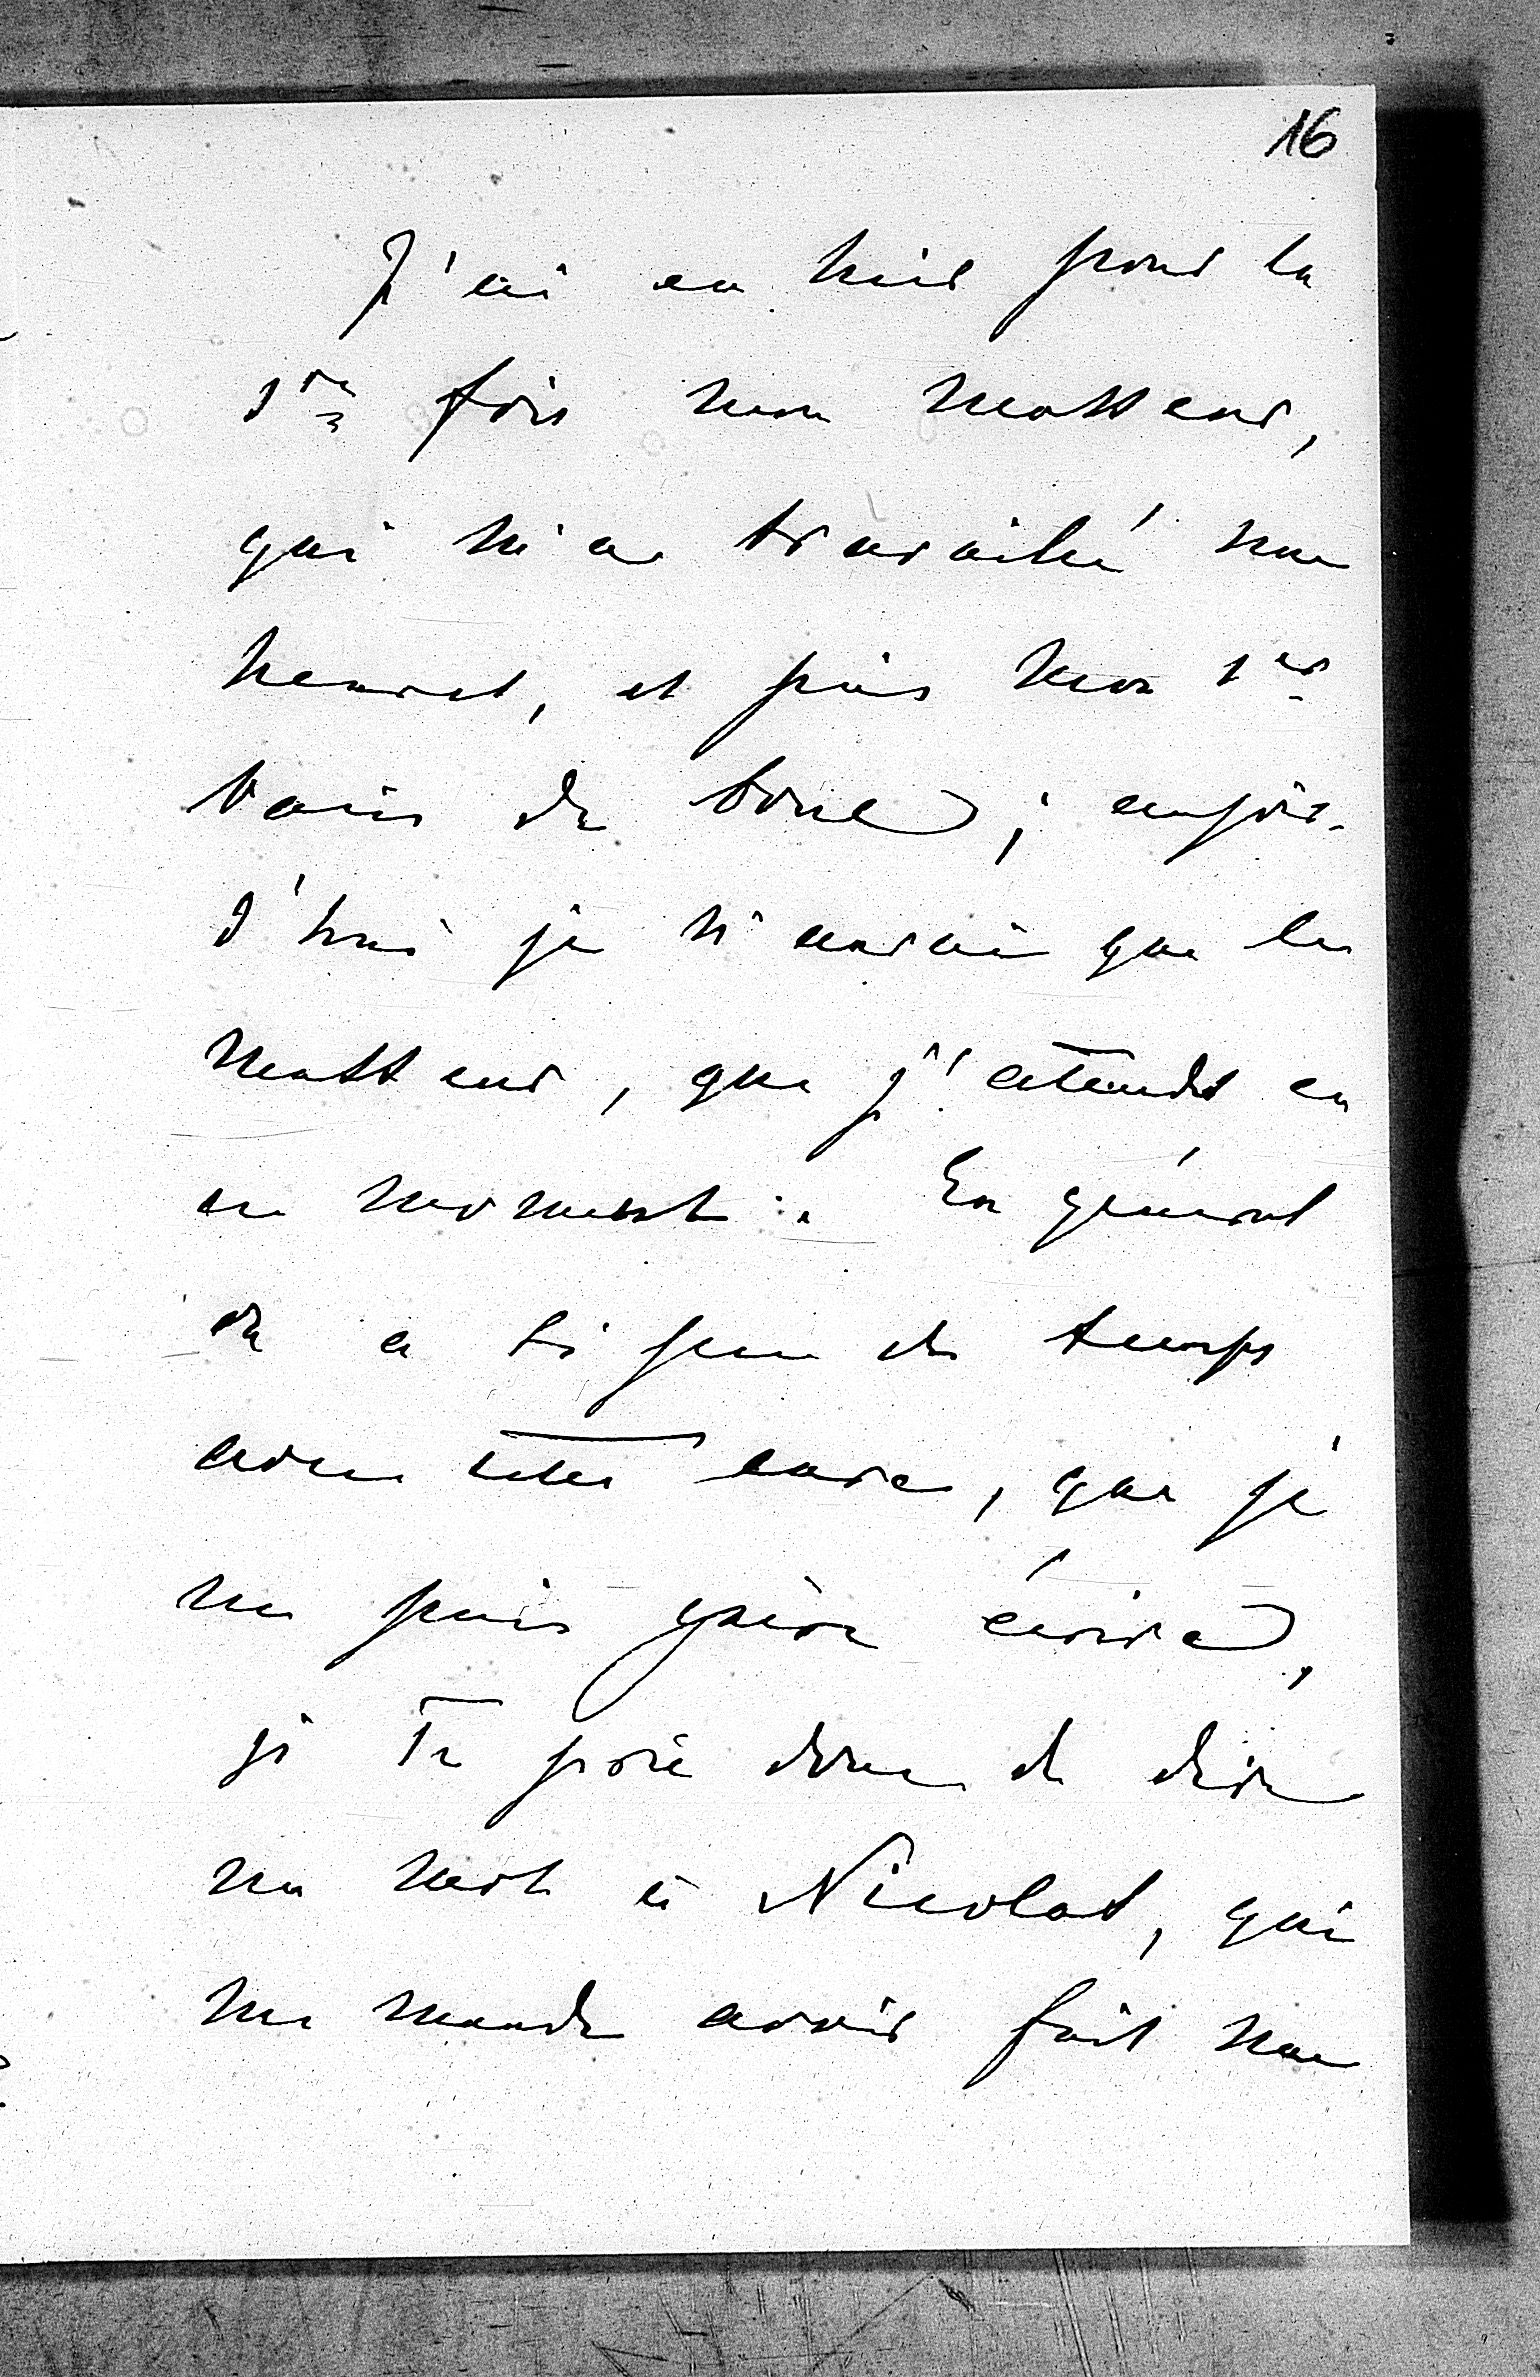 16
J'ai eu hier pour la
1re fois mon masseur,
qui m'a travaillé une
heure, et puis mon 1er
bain de boue; aujour-
d'hui je n'aurai que le
masseur, que j'attends en
ce moment. En général
on a si peu de temps
avec cette cure, que je
ne puis guère écrire,
je Te prie donc de dire
un mot à Nicolas, qui
me mande avoir fait une